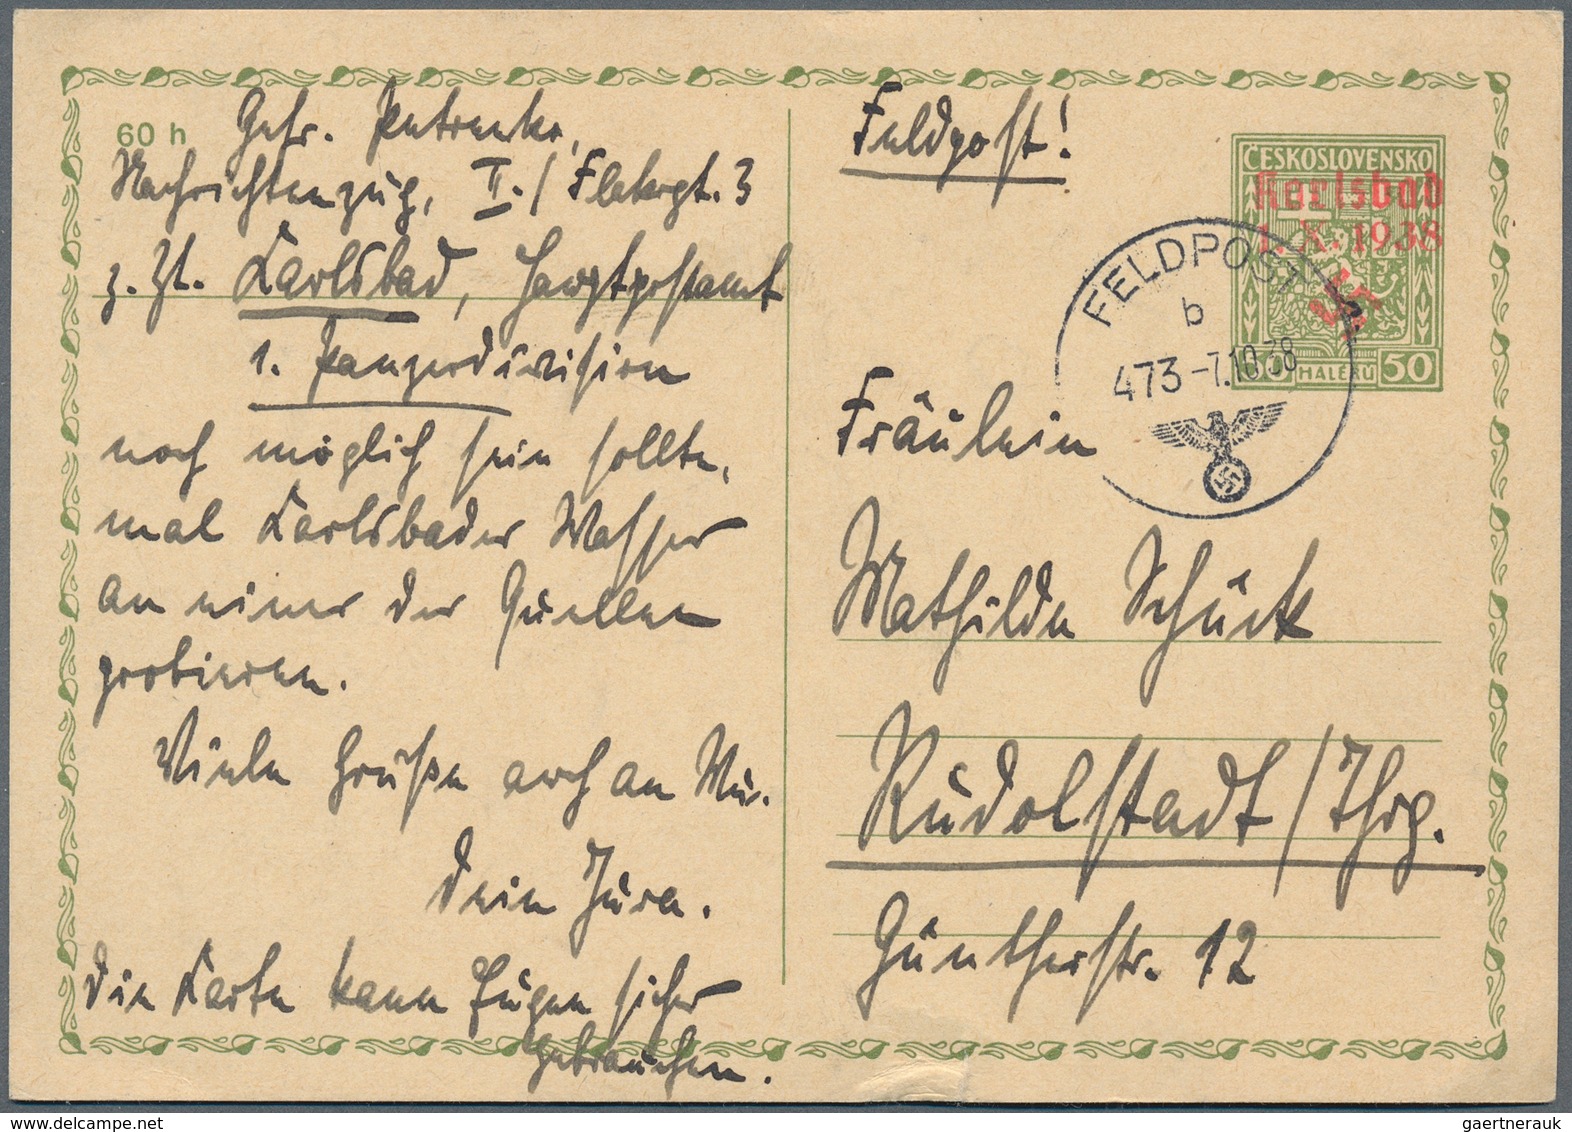 60 h
Gefr. Petrenko,
Nachrichtenzug, II./Flakrgt. 3
z. Zt. Karlsbad, Hauptpostamt
1. Panzerdivision
noch möglich sein sollte,
mal Karlsbader Wasser
an einer der Quellen
probieren.
Viele Grüße auch an
Dein Jura.
Die Karte kann Eugen sicher
gebrauchen.
Feldpost!
ČESKOSLOVENSKO
Karlsbad
1. X. 1938
50 HALÉŘŮ 50
FELDPOST
b
473 -7.10.38
Fräulein
Mathilde Schück
Rudolstadt/Thrg.
Güntherstr. 12
gaertnerauk